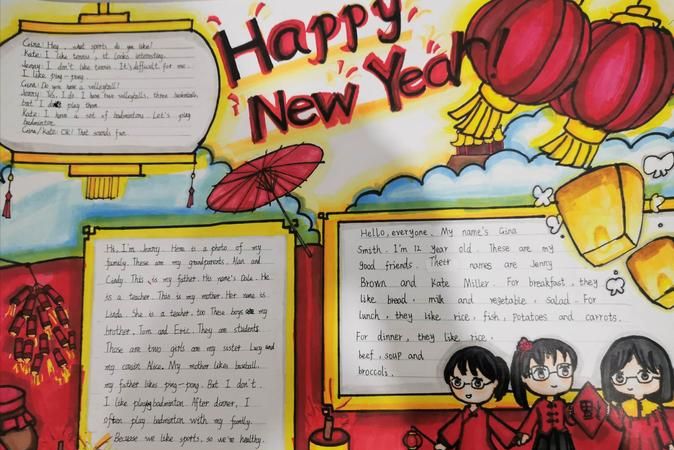 Happy
New Year!
Gina: Hey, what sports do you like?
Kate: I like tennis, it looks interesting.
Jenny: I don't like tennis. It's difficult for me.
I like ping-pong.
Gina: Do you have a volleyball?
Jenny: Yes, I do. I have two volleyballs, three basketballs,
but I don't play them.
Kate: I have a set of badminton. Let's going
badminton.
Gina/Kate: OK! That sounds fun.
Hi, I'm Jenny. Here is a photo of my
family. These are my grandparents, Alan and
Cindy. This is my father. His name's Dale. He
is a teacher. This is my mother. Her name is
Linda. She is a teacher, too. These boys are my
brother, Tom and Eric. They are students.
Those are two girls are my sister Lucy and
my cousin Alice. My mother likes baseball,
my father likes ping-pong. But I don't.
I like playing badminton. After dinner, I
often play badminton with my family.
Because we like sports, so we're healthy.
Hello, everyone. My name's Gina
Smith. I'm 12 year old. These are my
good friends. Their names are Jenny
Brown and Kate Miller. For breakfast, they
like bread, milk and vegetable, salad. For
lunch, they like rice, fish, potatoes and carrots.
For dinner, they like rice,
beef, soup and
broccoli.
福